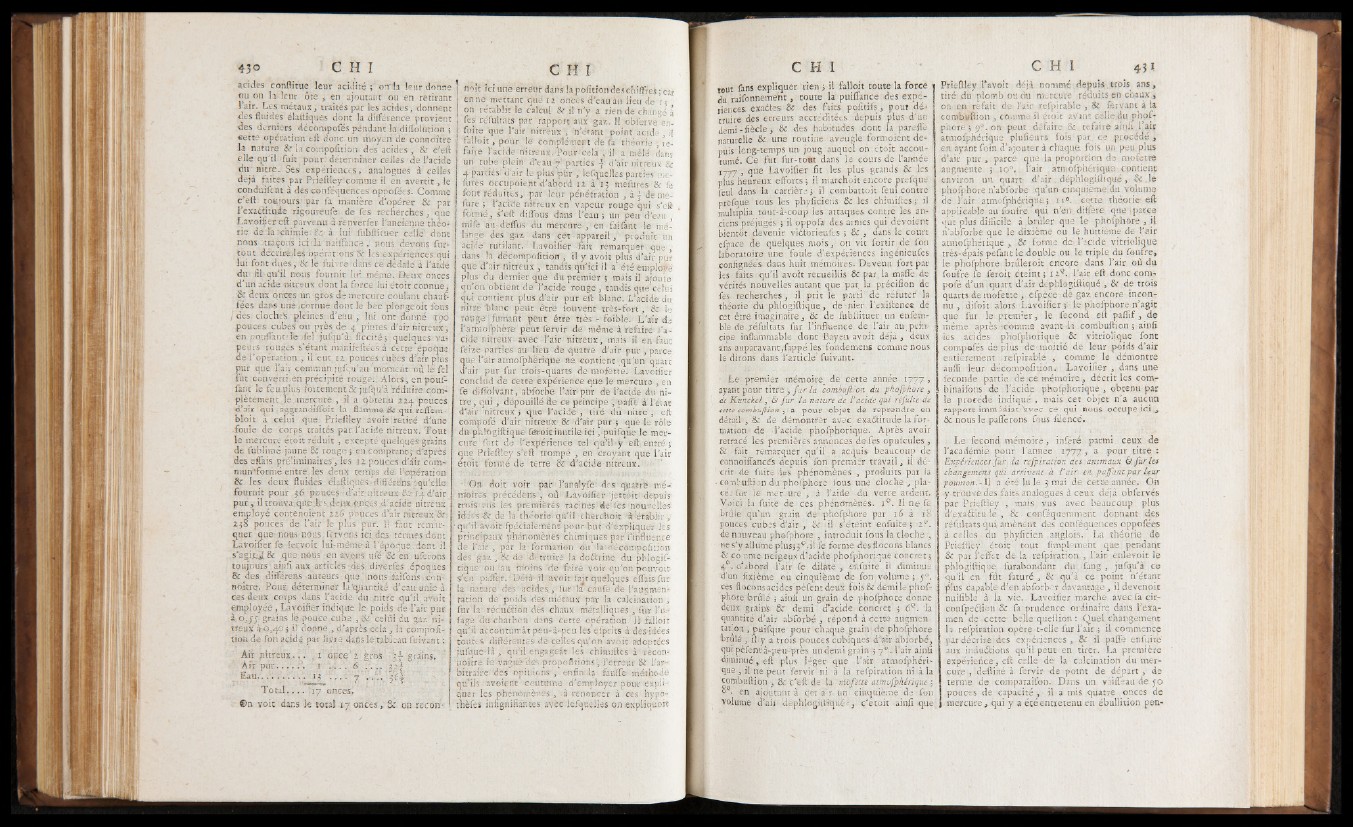 430 C H I
acides constitue leur acidité ; on la leur donne
ou on la leur ôte, en ajoutant ou en retirant
l'air. Les métaux, traités par les acides, donnent
des fluides élastiques dont la différence provient
des derniers décomposés pendant la dissolution ;
cette opération est donc un moyen de connoître
la nature & la composition des acides, & c'est
elle qu'il suit pour déterminer celles de l'acide
du nitre. Ses expériences, analogues à celles
déjà faites par Priestley comme il en avertit, le
conduisent à des conséquences opposées. Comme
c'est toujours par sa manière d'opérer & par
l'exactitude rigoureuse de ses recherches, que
Lavoisier est parvenu à renverser l'ancienne théo-
rie de la chimie & à lui substituer celle dont
nous traçons ici la naissance, nous devons sur-
tout décrire les opérations & les expériences qui
lui sont dues, & le suivre dans ce dédale à l'aide
du fil qu'il nous fournit lui même. Deux onces
d'un acide nitreux dont la force lui étoit connue,
& deux onces un gros de mercure coulant chauf-
fées dans une cornue dont le bec plongeoit sous
des cloches pleines d'eau, lui ont donné 190
pouces cubes ou près de 4 pintes d'air nitreux,
en poussant le sel jusqu'à siccité ; quelques va-
peurs rouges s'étant manifestées à cette époque
de l'opération, il eut 12 pouces cubes d'air plus
pur que l'air commun jusqu'au moment où le sel
fut converti en précipité rouge. Alors, en pous-
sant le feu plus fortement & jusqu'à réduire com-
plètement le mercure, il a obtenu 224 pouces
d'air qui aggrandissoit la flamme & qui ressem-
bloit à celui que Priestley avoit retiré d'une
foule de corps traités par l'acide nitreux. Tout
le mercure étoit réduit, excepté quelques grains
de sublimé jaune & rouge ; en comptant, d'après
des essais préliminaires, les 12 pouces d'air com-
mun formé entre les deux temps de l'opération
& les deux fluides élastiques différens qu'elle
fournit pour 36 pouces d'air nitreux & 14 d'air
pur, il trouva que les deux onces d'acide nitreux
employé contenoient 226 pouces d'air nitreux &
238 pouces de l'air le plus pur. Il faut remar-
quer que nous nous servons ici des termes dont
Lavoisier se servoit lui-même à l'époque dont il
s'agit, & que nous en avons usé & en userons
toujours ainsi aux articles des diverses époques
& des différens auteurs que nous faisons con-
noître. Pour déterminer la quantité d'eau unie à
ces deux corps dans l'acide du nitre qu'il avoit
employée, Lavoisier indique le poids de l'air pur
à 0,55 grains le pouce cube, & celui du gaz ni-
treux à 0,40 ; il donne, d'après cela, la composi-
tion de son acide par livre dans le tableau suivant :
Air nitreux... 1 once 2 gros grains.
Air pur...... 1 .... 6 ....
Eau......... 13 .... 7 ....
Total.... 17 onces.
On voit dans le total 17 onces, & on recon-
C H I
noît ici une erreur dans la position des chiffres ; car
en ne mettant que 12 onces d'eau au lieu de 13,
on rétablit le calcul & il n'y a rien de changé à
ses résultats par rapport aux gaz. Il observe en-
suite que l'air nitreux, n'étant point acide, il
falloit, pour le complément de sa théorie, re-
faire l'acide nitreux. Pour cela, il a mêlé dans
un tube plein d'eau 7 parties d'air nitreux &
4 parties d'air le plus pur, lesquelles parties me-
sures occupoient d'abord 12 à 13 mesures & se
sont réduites, par leur pénétration, à de me-
sure ; l'acide nitreux en vapeur rouge qui s'est
formé, s'est dissous dans l'eau ; un peu d'eau,
mise au dessus du mercure, en faisant le mé-
lange des gaz dans cet appareil, produit un
acide rutilant. Lavoisier fait remarquer que,
dans la décomposition, il y avoit plus d'air pur
que d'air nitreux, tandis qu'ici il a été employé
plus du dernier que du premier ; mais il ajoute
qu'on obtient de l'acide rouge, tandis que celui
qui contient plus d'air pur est blanc. L'acide du
nitre blanc peut être souvent très-fort, & le
rouge fumant peut être très-foible. L'air de
l'atmosphère peut servir de même à refaire l'a-
cide nitreux avec l'air nitreux, mais il en faut
seize parties au lieu de quatre d'air pur, parce
que l'air atmosphérique ne contient qu'un quart
d'air pur sur trois-quarts de mofette. Lavoisier
conclud de cette expérience que le mercure, en
se dissolvant, absorbe l'air pur de l'acide du ni-
tre, qui, dépouillé de ce principe, passe à l'état
d'air nitreux ; que l'acide, tiré du nitre, est
composé d'air nitreux & d'air pur ; que le rôle
du phlogistique seroit inutile ici, puisque le mer-
cure sort de l'expérience tel qu'il y est entré ;
que Priestley s'est trompé, en croyant que l'air
étoit formé de terre & d'acide nitreux.
On doit voir par l'analyse des quatre mé-
moires précédens, où Lavoisier jettoit depuis
trois ans les premières racines de ses nouvelles
idées & de la théorie qu'il cherchoit à établir,
qu'il avoit spécialement pour but d'expliquer les
principaux phénomènes chimiques par l'influence
de l'air, par la formation ou la décomposition
des gaz, & de détruire la doctrine du phlogis-
tique ou au moins de faire voir qu'on pouvoit
s'en passer. Déjà il avoit fait quelques essais sur
la nature des acides, sur la cause de l'augmen-
tation de poids des métaux par la calcination,
sur la réduction des chaux métalliques, sur l'u-
sage du charbon dans cette opération. Il falloit
qu'il accoutumât peu-à-peu les esprits à des idées
toutes différentes de celles qu'on avoit adoptées
jusque-là, qu'il engageât les chimistes à recon-
noître le vague des propositions, l'erreur & l'ar-
bitraire des opinions, enfin la fausse méthode
qu'ils avoient coutume d'employer pour expli-
quer les phénomènes, à renoncer à ces hypo-
thèses insignifiantes avec lesquelles on expliquoit
C H I
tout sans expliquer rien ; il falloit toute la force
du raisonnement, toute la puissance des expé-
riences exactes & des faits positifs, pour dé-
truire des erreurs accréditées depuis plus d'un
demi-siècle, & des habitudes dont la paresse
naturelle & une routine aveugle formoient de-
puis long-temps un joug auquel on étoit accou-
tumé. Ce fut sur-tout dans le cours de l'année
1777, que Lavoisier fit les plus grands & les
plus heureux efforts ; il marchoit encore presque
seul dans la carrière ; il combattoit seul contre
presque tous les physiciens & les chimistes ; il
multiplia tout-à-coup les attaques contre les an-
ciens préjugés ; il opposa des armes qui devoient
bientôt devenir victorieuses ; &, dans le court
espace de quelques mois, on vit sortir de son
laboratoire une foule d'expériences ingénieuses
consignées dans huit mémoires. Devenu fort par
les faits qu'il avoit recueillis & par la masse de
vérités nouvelles autant que par la précision de
ses recherches, il prit le parti de réfuter la
théorie du phlogistique, de nier l'existence de
cet être imaginaire, & de substituer un ensem-
ble de résultats sur l'influence de l'air au prin-
cipe inflammable dont Bayen avoit déjà, deux
ans auparavant, sappé les fondemens comme nous
le dirons dans l'article suivant.
Le premier mémoire de cette année 1777,
ayant pour titre, sur la combustion du phosphore
de Kunckel, & sur la nature de l'acide qui résulte de
cette combustion, a pour objet de reprendre en
détail, & de démontrer avec exactitude la for-
mation de l'acide phosphorique. Après avoir
retracé les premières annonces de ses opuscules,
& fait remarquer qu'il a acquis beaucoup de
connoissances depuis son premier travail, il dé-
crit de suite les phénomènes, produits par la
combustion du phosphore sous une cloche, pla-
cée sur le mercure, à l'aide du verre ardent.
Voici la suite de ces phénomènes. 1°. Il ne se
brûle qu'un grain de phosphore par 16 à 18
pouces cubes d'air, & il s'éteint ensuite ; 2°.
de nouveau phosphore, introduit sous la cloche,
ne s'y allume plus ; 3°. il se forme des flocons blancs
& comme neigeux d'acide phosphorique concret ;
4°. d'abord l'air se dilate, ensuite il diminue
d'un sixième ou cinquième de son volume ; 5°.
ces flocons acides pèsent deux fois & demi le phos-
phore brûlé ; ainsi un grain de phosphore donne
deux grains & demi d'acide concret ; 6°. la
quantité d'air absorbé, répond à cette augmen-
tation, puisque pour chaque grain de phosphore
brûlé, il y a trois pouces cubiques d'air absorbé,
qui pèsent-à-peu-près un demi grain ; 7°. l'air ainsi
diminué, est plus léger que l'air atmosphéri-
que, il ne peut servir ni à la respiration ni à la
combustion, & c'est de la mofette atmosphérique ;
8°. en ajoutant à cet air un cinquième de son
volume d'air déphlogistiqué, c'étoit ainsi que
C H I 431
Priestley l'avoit déjà nommé depuis trois ans,
tiré du plomb ou du mercure réduits en chaux,
on en refait de l'air respirable, & servant à la
combustion, comme il étoit avant celle du phos-
phore ; 9°. on peut défaire & refaire ainsi l'air
atmosphérique plusieurs fois par ce procédé,
en ayant soin d'ajouter à chaque fois un peu plus
d'air pur, parce que la proportion de mofette
augmente ; 10°. l'air atmosphérique contient
environ un quart d'air déphlogistiqué, & le
phosphore n'absorbe qu'un cinquième du volume
de l'air atmosphérique ; 11°. cette théorie est
applicable au soufre qui n'en diffère que parce
que plus difficile à brûler que le phosphore, il
n'absorbe que le dixième ou le huitième de l'air
atmosphérique, & forme de l'acide vitriolique
très-épais pesant le double ou le triple du soufre,
le phosphore brûleroit encore dans l'air où du
soufre se seroit éteint ; 12°. l'air est donc com-
posé d'un quart d'air déphlogistiqué, & de trois
quarts de mofette, espèce de gaz encore incon-
nu, disoit alors Lavoisier ; le phosphore n'agit
que sur le premier, le second est passif, de
même après comme avant la combustion ; ainsi
les acides phosphorique & vitriolique sont
composés de plus de moitié de leur poids d'air
entièrement respirable, comme le démontre
aussi leur décomposition. Lavoisier, dans une
seconde partie de ce mémoire, décrit les com-
binaisons de l'acide phosphorique, obtenu par
le procédé indiqué, mais cet objet n'a aucun
rapport immédiat avec ce qui nous occupe ici,
& nous le passerons sous silence.
Le second mémoire, inséré parmi ceux de
l'académie pour l'année 1777, a pour titre :
Expériences sur la respiration des animaux & sur les
changemens qui arrivent à l'air en passant par leur
poumon. Il a été lu le 3 mai de cette année. On
y trouve des faits analogues à ceux déjà observés
par Priestley, mais vus avec beaucoup plus
d'exactitude, & conséquemment donnant des
résultats qui amènent des conséquences opposées
à celles du physicien anglois. La théorie de
Priestley étoit tout simplement que pendant
& par l'effet de la respiration, l'air enlevoit le
phlogistique surabondant du sang, jusqu'à ce
qu'il en fût saturé, & qu'à ce point n'étant
plus capable d'en absorber davantage, il devenoit
nuisible à la vie. Lavoisier marche avec sa cir-
conspection & sa prudence ordinaire dans l'exa-
men de cette belle question : Quel changement
la respiration opère-t-elle sur l'air ; il commence
par décrire des expériences, & il passe ensuite
aux inductions qu'il peut en tirer. La première
expérience, est celle de la calcination du mer-
cure, destinée à servir de point de départ, de
terme de comparaison. Dans un vaisseau de 50
pouces de capacité, il a mis quatre onces de
mercure, qui y a été entretenu en ébullition pen-